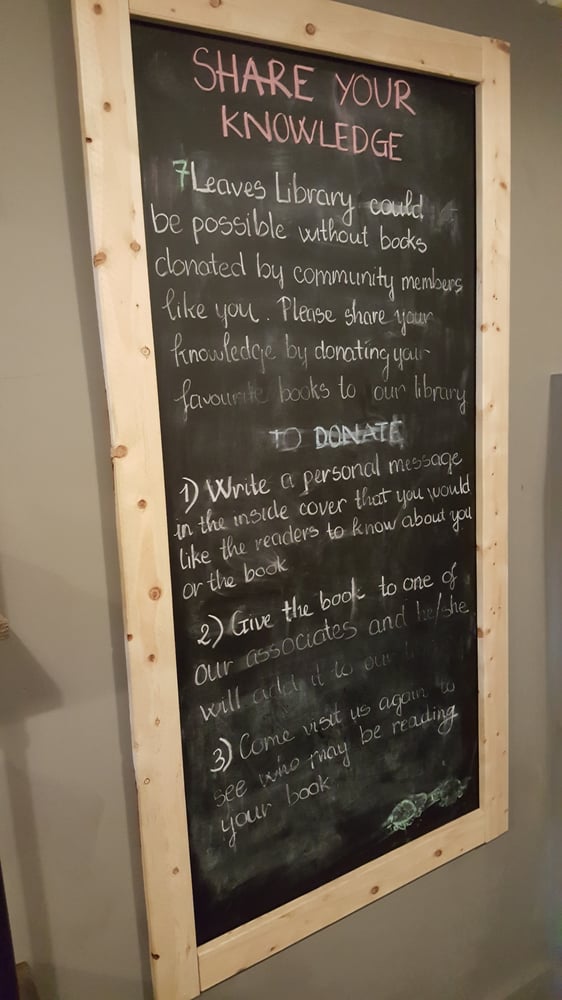 SHARE YOUR
KNOWLEDGE
7Leaves Library could
be possible without books
donated by community members
like you. Please share your
knowledge by donating your
favourite books to our library
TO DONATE
1) Write a personal message
in the inside cover that you would
like the readers to know about you
or the book
2) Give the book to one of
our associates and he/she
will add it to our
3) Come visit us again to
see who may be reading
your book